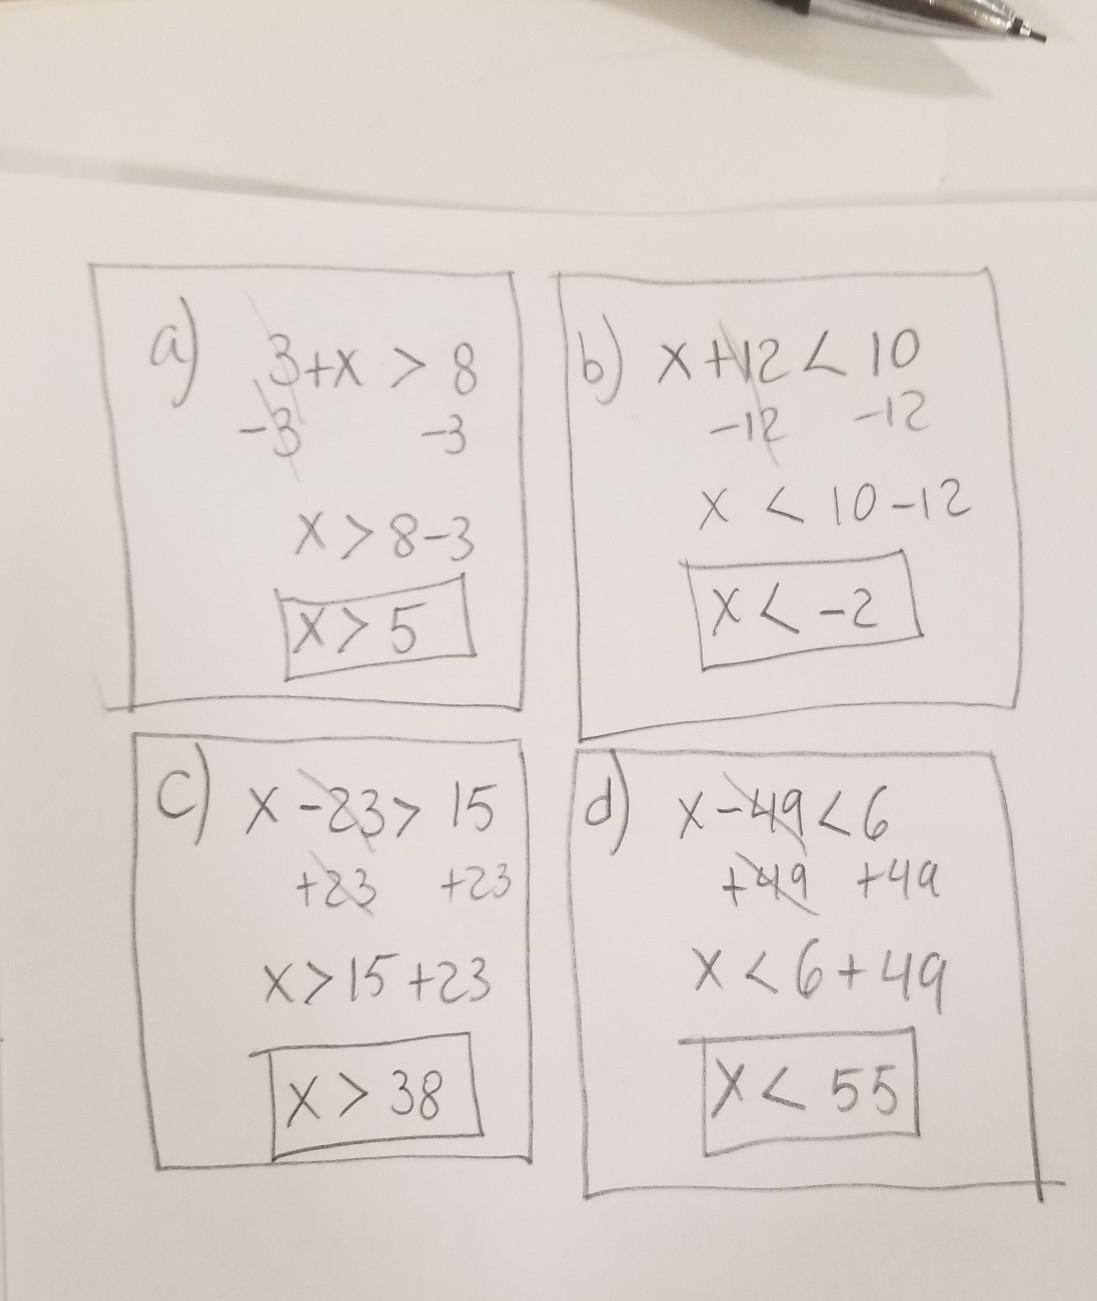 a) 3+x > 8
-3 -3
x > 8-3
x > 5
b) x+12 < 10
-12 -12
x < 10-12
x < -2
c) x-23 > 15
+23 +23
x > 15+23
x > 38
d) x-49 < 6
+49 +49
x < 6+49
x < 55